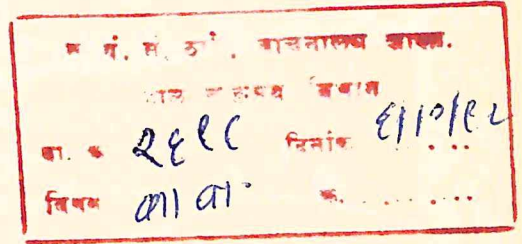 म. ग्रं. सं. ठाणे, वाचनालय शाखा.
विभाग
दा. क्र २६९८ दिनांक ६/१०/९२
विषय का वा. क्र. . . . . . .